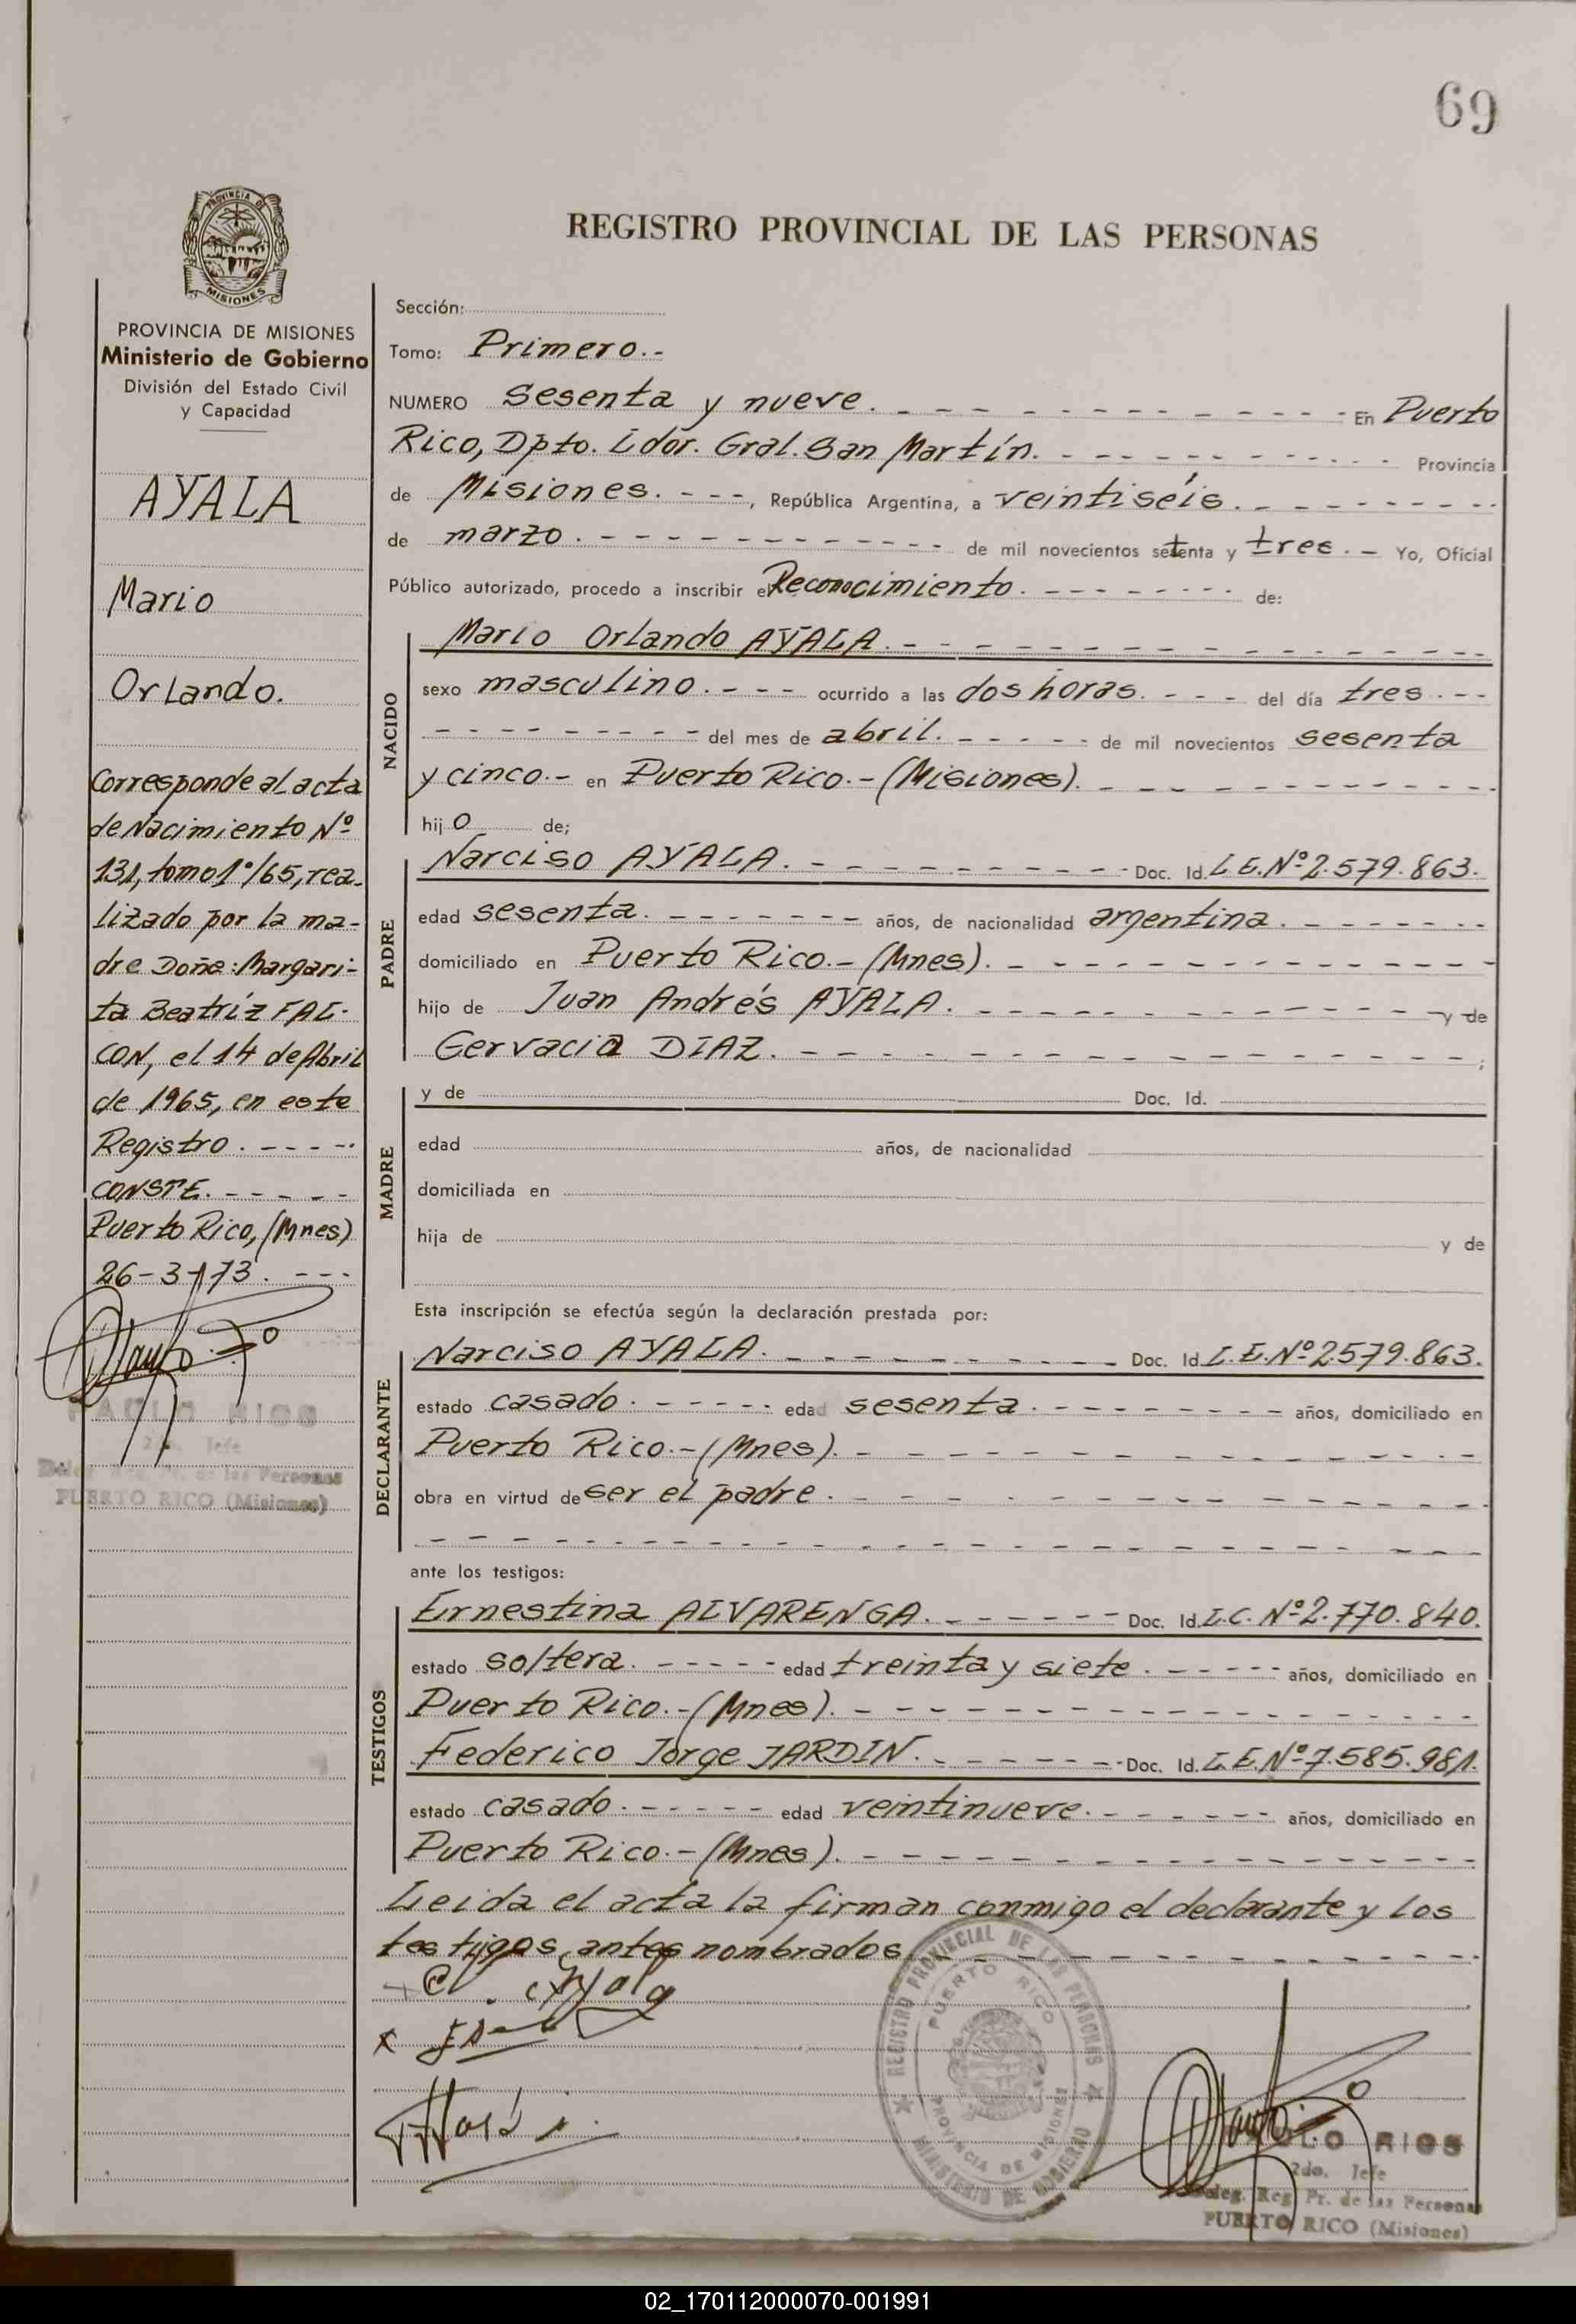 69
PROVINCIA DE
MISIONES
REGISTRO PROVINCIAL DE LAS PERSONAS
PROVINCIA DE MISIONES
Ministerio de Gobierno
División del Estado Civil
y Capacidad
AYALA
Mario
Orlando.
Corresponde al acta
de Nacimiento Nº
131, tomo 1º/65, rea-
lizado por la ma-
dre Doña: Margari-
ta Beatríz FAL-
CON, el 14 de Abril
de 1965, en este
Registro. - - - - -
CONSTE. - - - - -
Puerto Rico, (Mnes)
26-3-73. - - -
PABLO RIOS
2do. Jefe
Deleg. Reg. Pr. de las Personas
PUERTO RICO (Misiones)
Sección:
Tomo: Primero.-
NUMERO Sesenta y nueve. - - - - - - - - - - - En Puerto
Rico, Dpto. Ldor. Gral. San Martín. - - - - - - - - - Provincia
de Misiones. - - -, República Argentina, a veintiséis. - - - - - - -
de marzo. - - - - - - - - - - - - de mil novecientos setenta y tres. - Yo, Oficial
Público autorizado, procedo a inscribir el Reconocimiento. - - - - - - - de:
NACIDO
Mario Orlando AYALA. - - - - - - - - - - - - - -
sexo masculino. - - - ocurrido a las dos horas. - - - del día tres. - -
- - - - - - - - - del mes de abril. - - - - - de mil novecientos sesenta
y cinco.- en Puerto Rico.- (Misiones). - - - - - - - - - - -
hijo de;
PADRE
Narciso AYALA. - - - - - - - - - Doc. Id. L.E. Nº 2.579.863.
edad sesenta. - - - - - - - años, de nacionalidad argentina. - - - - - -
domiciliado en Puerto Rico.- (Mnes). - - - - - - - - - - - - -
hijo de Juan Andrés AYALA. - - - - - - - - - - - - y de
Gervacia DIAZ. - - - - - - - - - - - - - - - - ;
MADRE
y de Doc. Id.
edad años, de nacionalidad
domiciliada en
hija de y de
Esta inscripción se efectúa según la declaración prestada por:
DECLARANTE
Narciso AYALA. - - - - - - - - - Doc. Id. L.E. Nº 2.579.863.
estado casado. - - - - - edad sesenta. - - - - - - - - años, domiciliado en
Puerto Rico.- (Mnes). - - - - - - - - - - - - - - -
obra en virtud de ser el padre. - - - - - - - - - - - - - - -
- - - - - - - - - - - - - - - - - - - - - - - - -
ante los testigos:
TESTIGOS
Ernestina ALVARENGA. - - - - - - Doc. Id. L.C. Nº 2.770.840.
estado soltera. - - - - - edad treinta y siete. - - - - - años, domiciliado en
Puerto Rico.- (Mnes). - - - - - - - - - - - - - - -
Federico Jorge JARDIN. - - - - - - Doc. Id. L.E. Nº 7.585.981.
estado casado. - - - - - edad veintinueve. - - - - - - años, domiciliado en
Puerto Rico.- (Mnes). - - - - - - - - - - - - - - -
Leida el acta la firman conmigo el declarante y los
testigos antes nombrados. - - - - - - - - - - - - -
Ayala
REGISTRO PROVINCIAL DE LAS PERSONAS
PUERTO RICO
PROVINCIA DE MISIONES
MINISTERIO DE GOBIERNO
PABLO RIOS
2do. Jefe
Deleg. Reg. Pr. de las Personas
PUERTO RICO (Misiones)
02_170112000070-001991